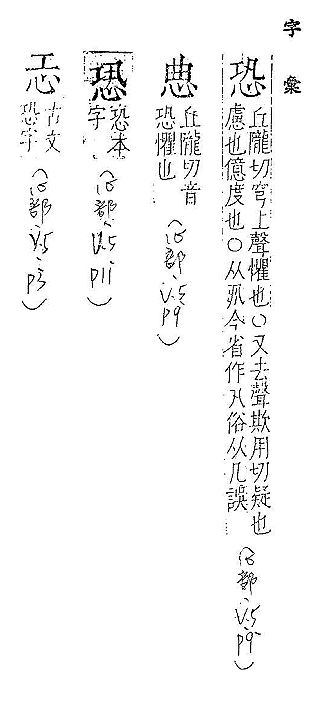 字彙
恐
丘隴切穹上聲懼也○又去聲欺用切疑也
慮也億度也○从巩今省作俗从几誤
(心部,V.5 P9)
丘隴切音
恐懼也
(心部,V.5 P9)
恐本
字
(心部,V.5 P11)
古文
恐字
(心部,V.5 P3)